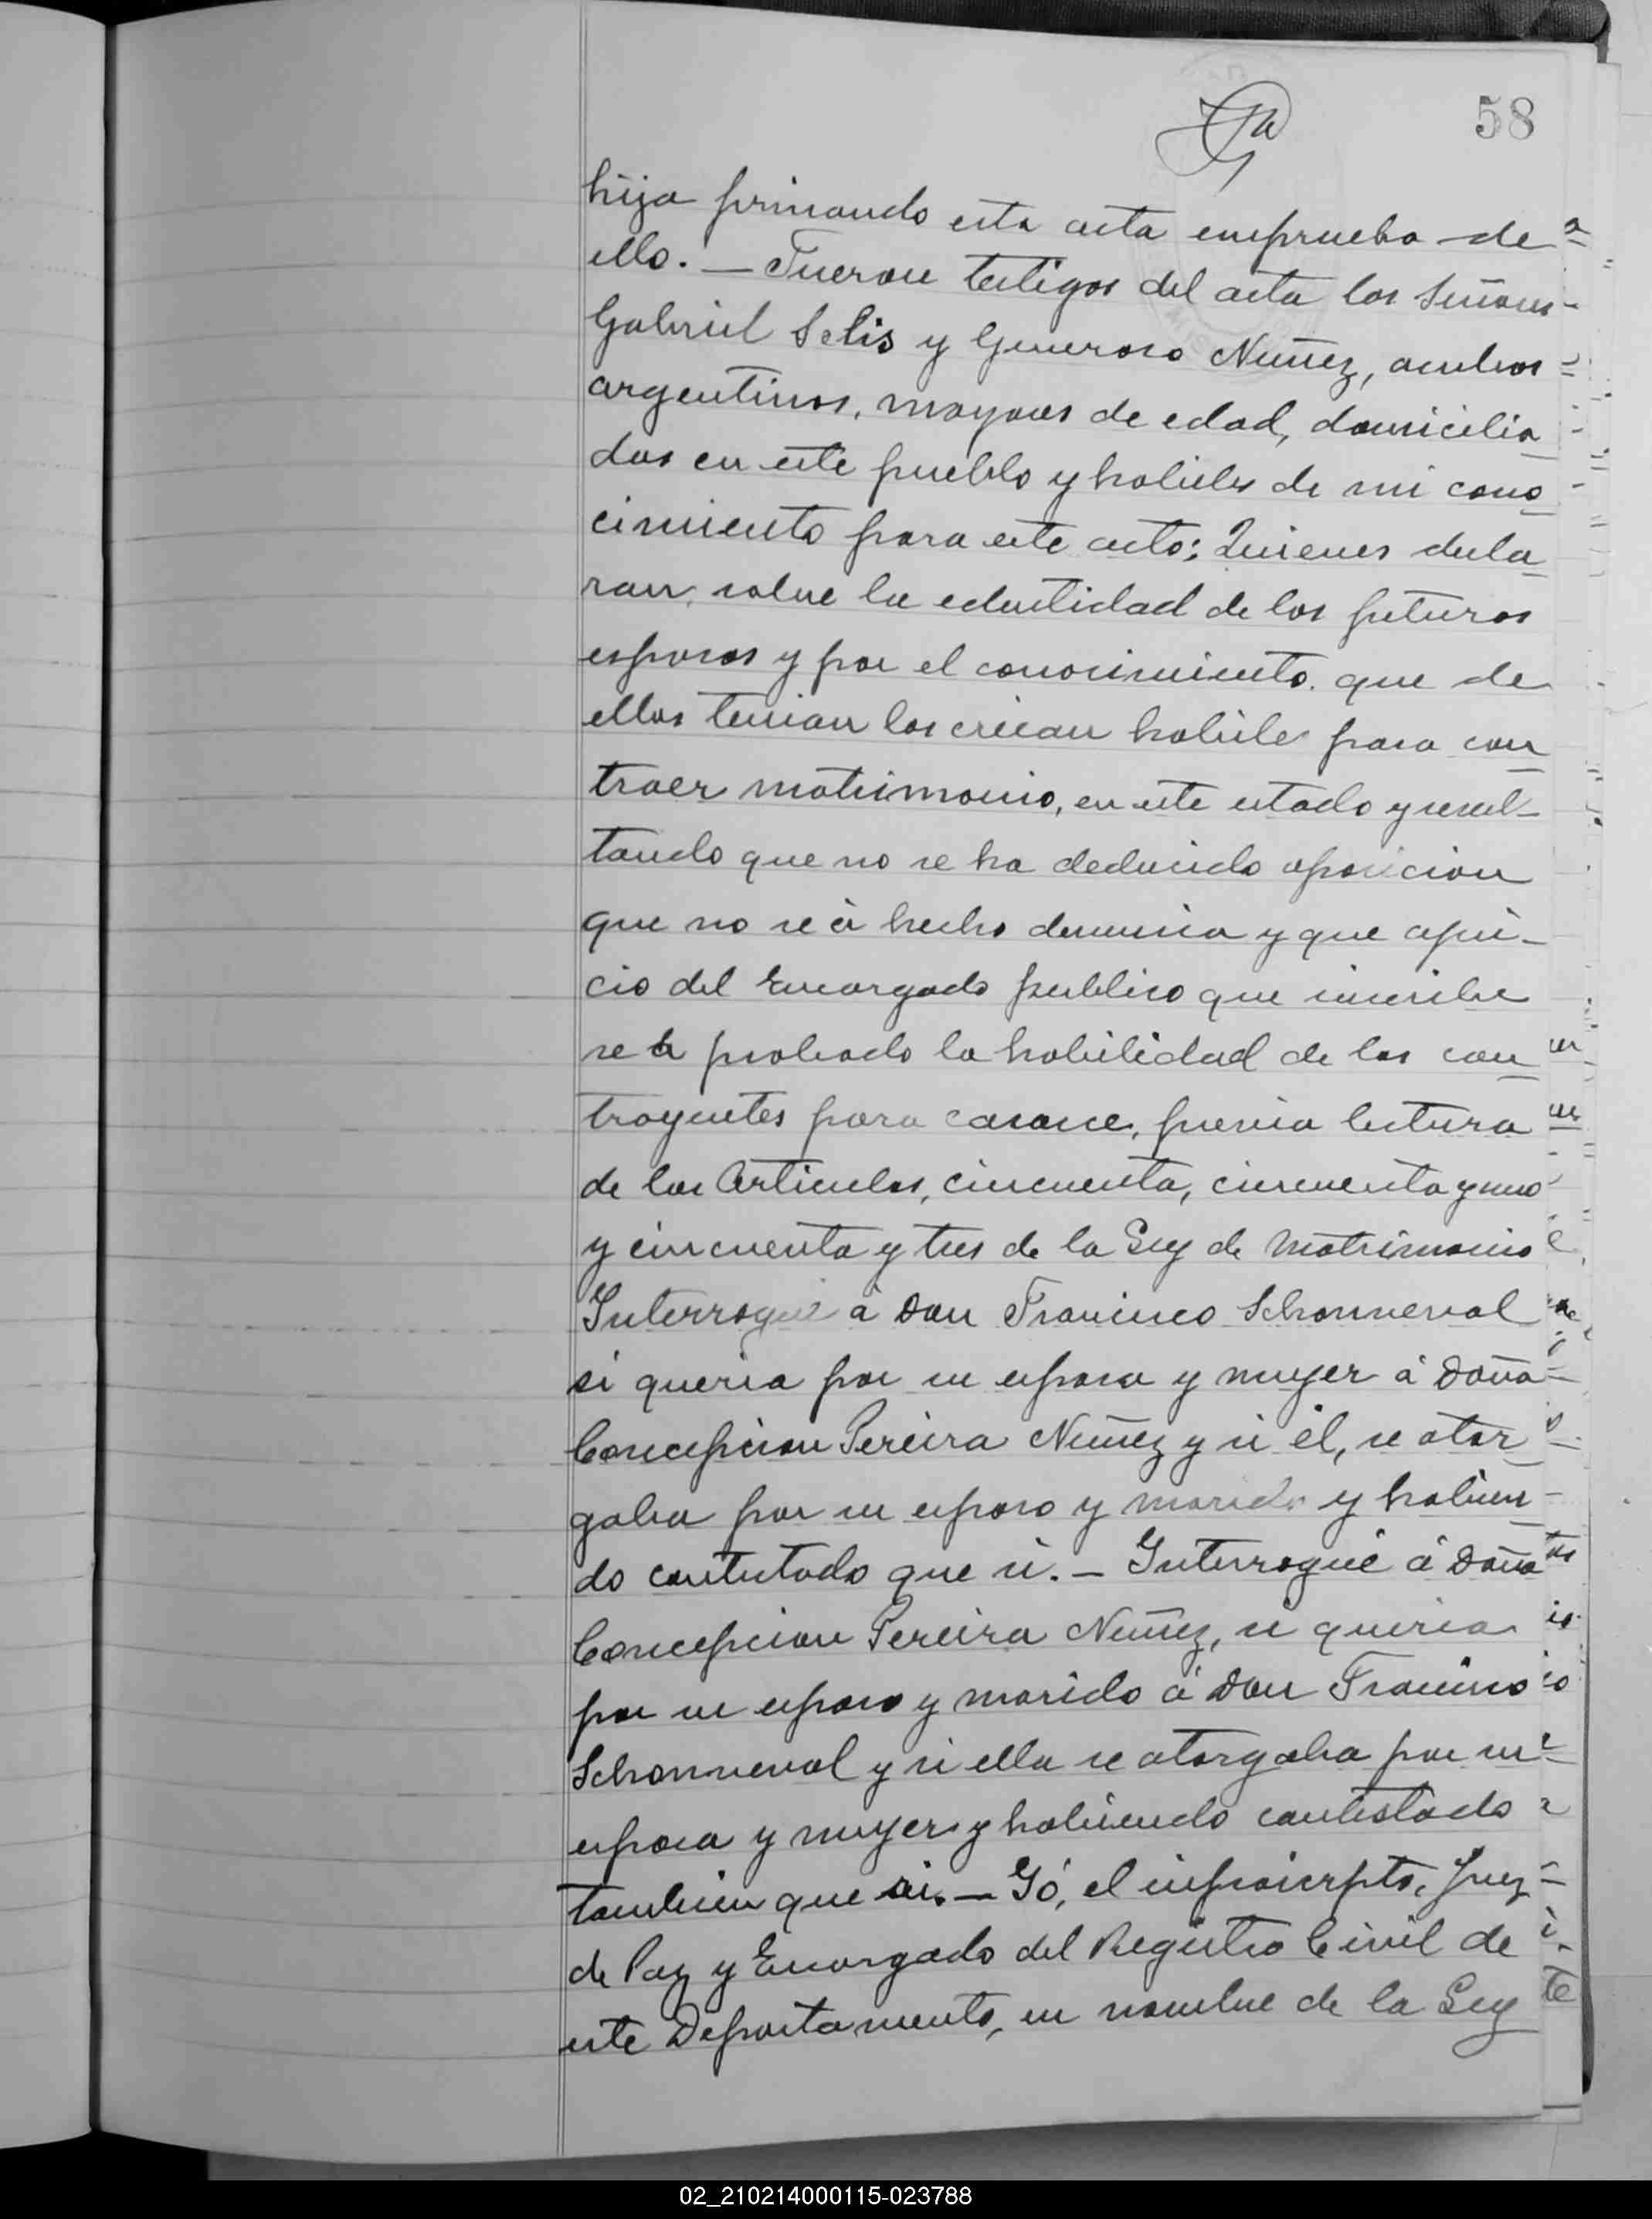 58
hija firmando esta acta enprueba de
ello. — Fueron testigos del acta los Señores
Gabriel Selis y Generoso Nuñez, ambos
argentinos, mayores de edad, domicilia
dos en este pueblo y habiles de mi cono
cimiento para este acto; Quienes decla
ran, sobre la edentidad de los futuros
esposos y por el conocimiento que de
ellos tenian los creian habiles para con
traer matrimonio, en este estado y resul-
tando que no se ha deducido oposicion
que no se á hecho denuncia y que ajui-
cio del Encargado publico que suscribe
se a probado la habilidad de los con
trayentes para casarse, previa lectura
de los Articulos, cincuenta, cincuenta y uno
y cincuenta y tres de la Ley de Matrimonio
Interrogué á Don Francisco Schonneval
si queria por su esposa y mujer á Doña
Concepcion Pereira Nuñez y si él, se otor
gaba por su esposo y marido y habien
do contestado que si. — Interrogué á Doña
Concepcion Pereira Nuñez, si queria
por su esposo y marido á Don Francisco
Schonneval y si ella se otorgaba por su
esposa y mujer y habiendo contestado
tambien que si. — Yó, el infrascrpto, Juez
de Paz y Encargado del Registro Civil de
este Departamento, en nombre de la Ley
02_210214000115-023788